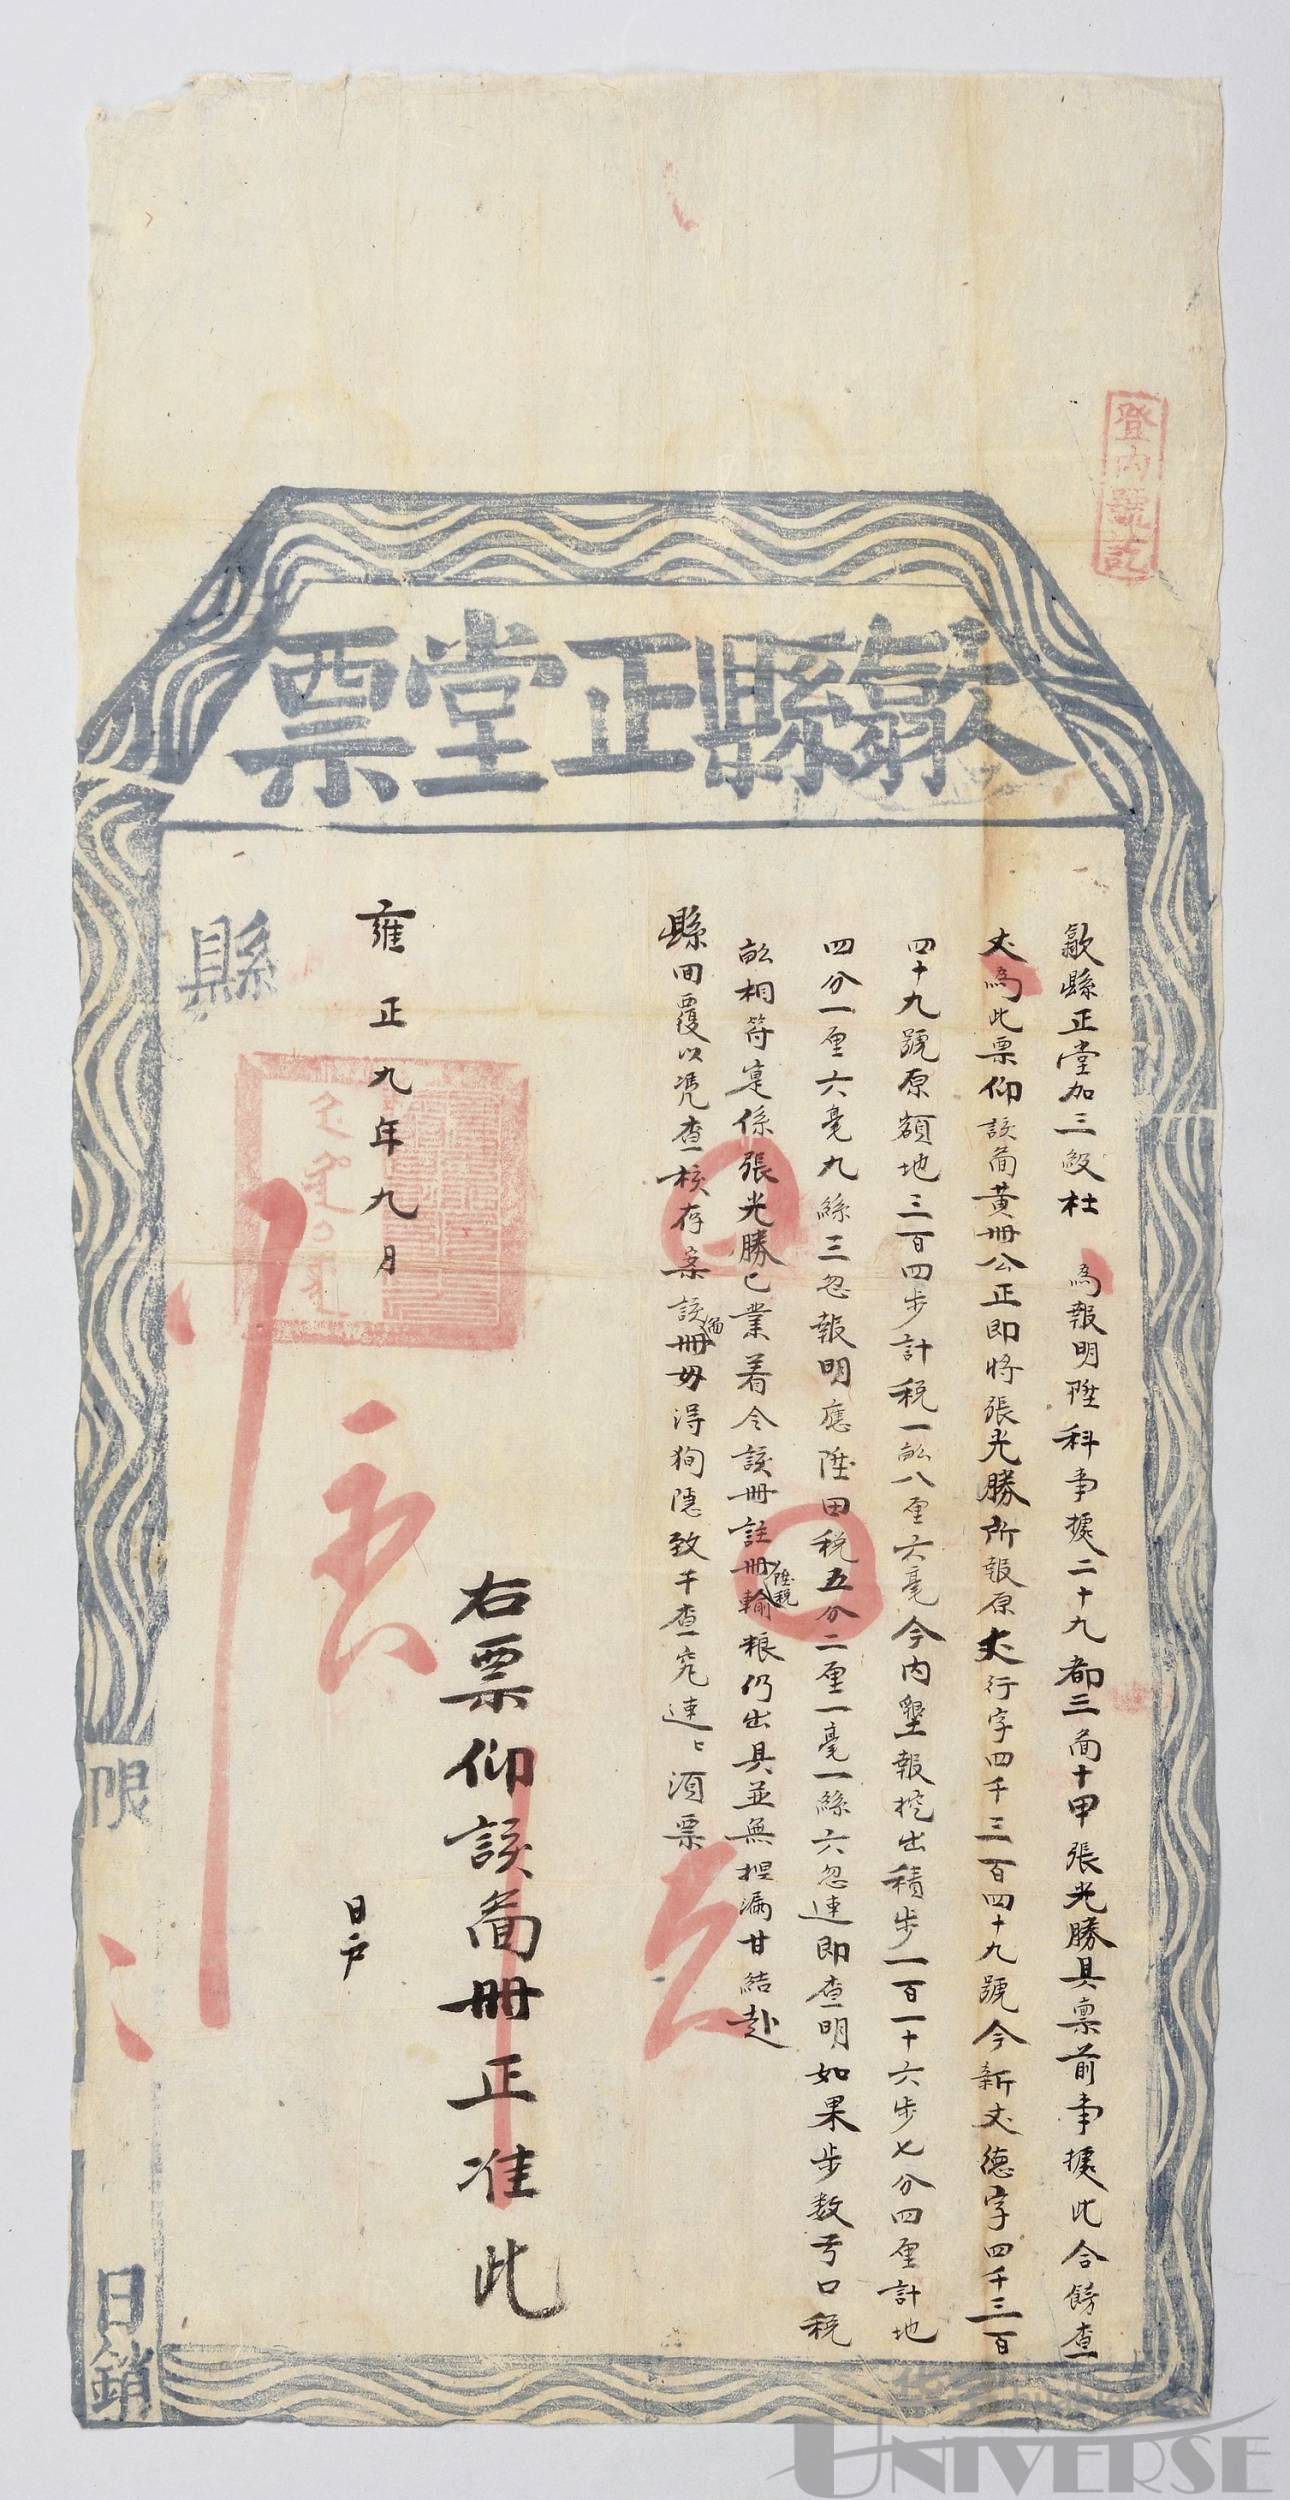 登內號訖
歙縣正堂票
歙縣正堂加三級杜 為報明陞科事據二十九都三啚十甲張光勝具稟前事據此合飭查
丈為此票仰該啚黃冊公正即將張光勝所報原丈行字四千三百四十九號今新丈德字四千三百
四十九號原額地三百四步計稅一畝八厘六毫今內墾報挖出積步一百一十六步七分四厘計地
四分一厘六毫九絲三忽報明應陞田稅五分二厘一毫一絲六忽速即查明如果步數弓口稅
畝相符寔係張光勝已業着令該冊註冊陞稅輸粮仍出具並無捏漏甘結赴
縣回覆以凴查核存案該啚冊毋得狥隱致干查究速速須票
右票仰該啚冊正准此
雍正九年九月 日戶
縣
限 日銷
UNIVERSE